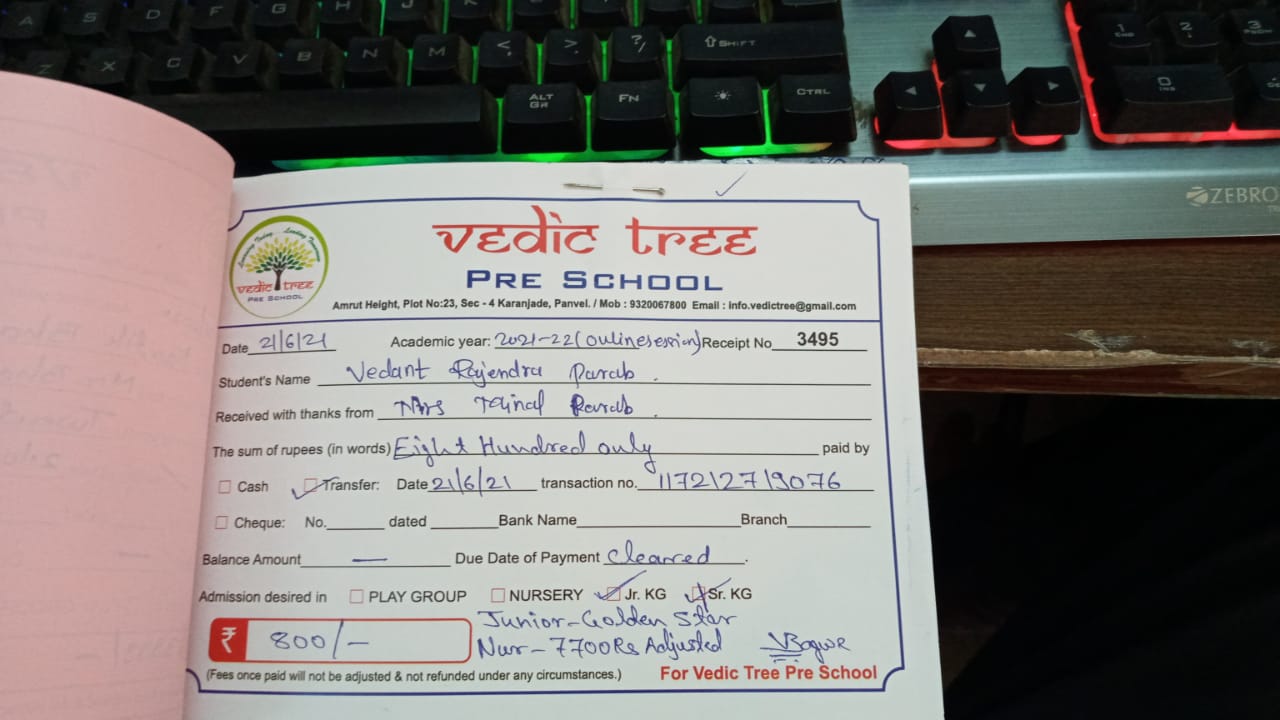 A S D F G H J K L
Z X C V B N M < , > . ? / ⇧ SHIFT
ALT GR FN CTRL
1 END 2 3 PGDN
0 INS
ZEBRO
Learning Today... Leading Tomorrow
vedic tree
PRE SCHOOL
vedic tree
PRE SCHOOL
Amrut Height, Plot No:23, Sec - 4 Karanjade, Panvel. / Mob : 9320067800 Email : info.vedictree@gmail.com
Date 21/6/21 Academic year: 2021-22 (Online session) Receipt No 3495
Student's Name Vedant Rajendra Parab.
Received with thanks from Mrs Parab.
The sum of rupees (in words) Eight Hundred only paid by
Cash Transfer: Date 21/6/21 transaction no. 117212719076
Cheque: No. dated Bank Name Branch
Balance Amount — Due Date of Payment Cleared.
Admission desired in PLAY GROUP NURSERY Jr. KG Sr. KG
Junior-Golden Star
₹ 800/- Nur- 7700Rs Adjusted
(Fees once paid will not be adjusted & not refunded under any circumstances.) For Vedic Tree Pre School